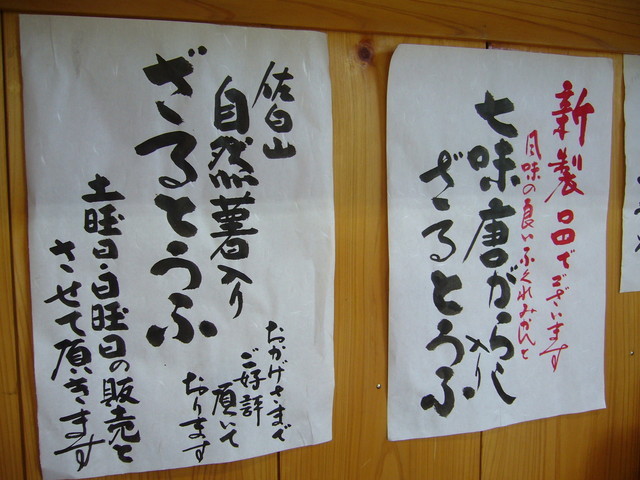 新製品でございます
風味の良いふくれみかんと
七味唐がらし入り
ざるとうふ
佐白山
自然薯入り
ざるとうふ
おかげさまで
ご好評
頂いて
おります
土曜日・日曜日の販売と
させて頂きます